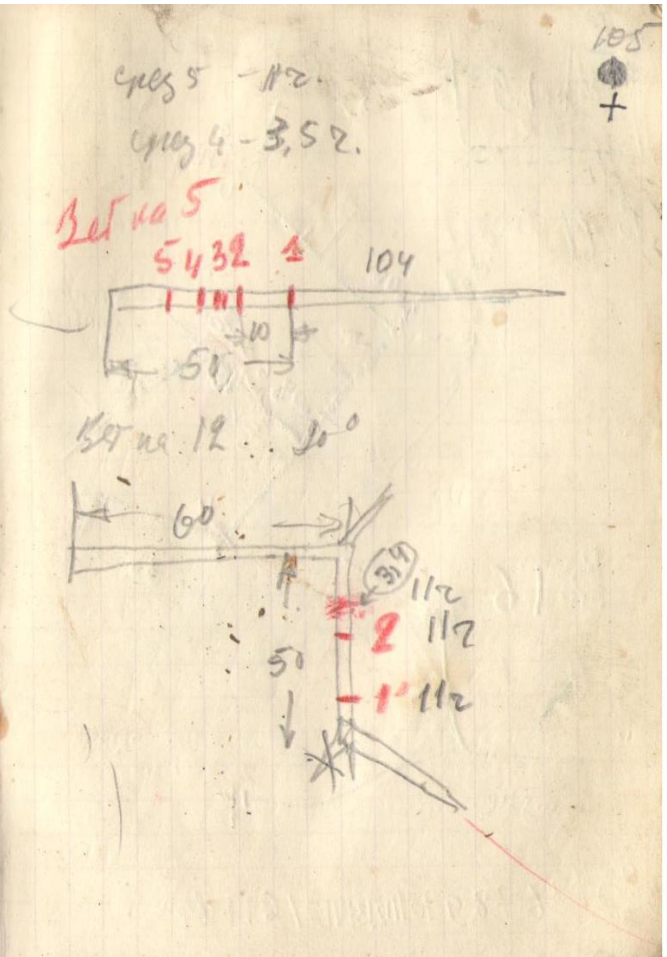 105
+
срез 5 - 11 г.
срез 4 - 3,5 г.
Ветка 5
5 4 3 2 1
104
10
50
Ветка 12
60
3,4
11г
2 11г
50
1 11г